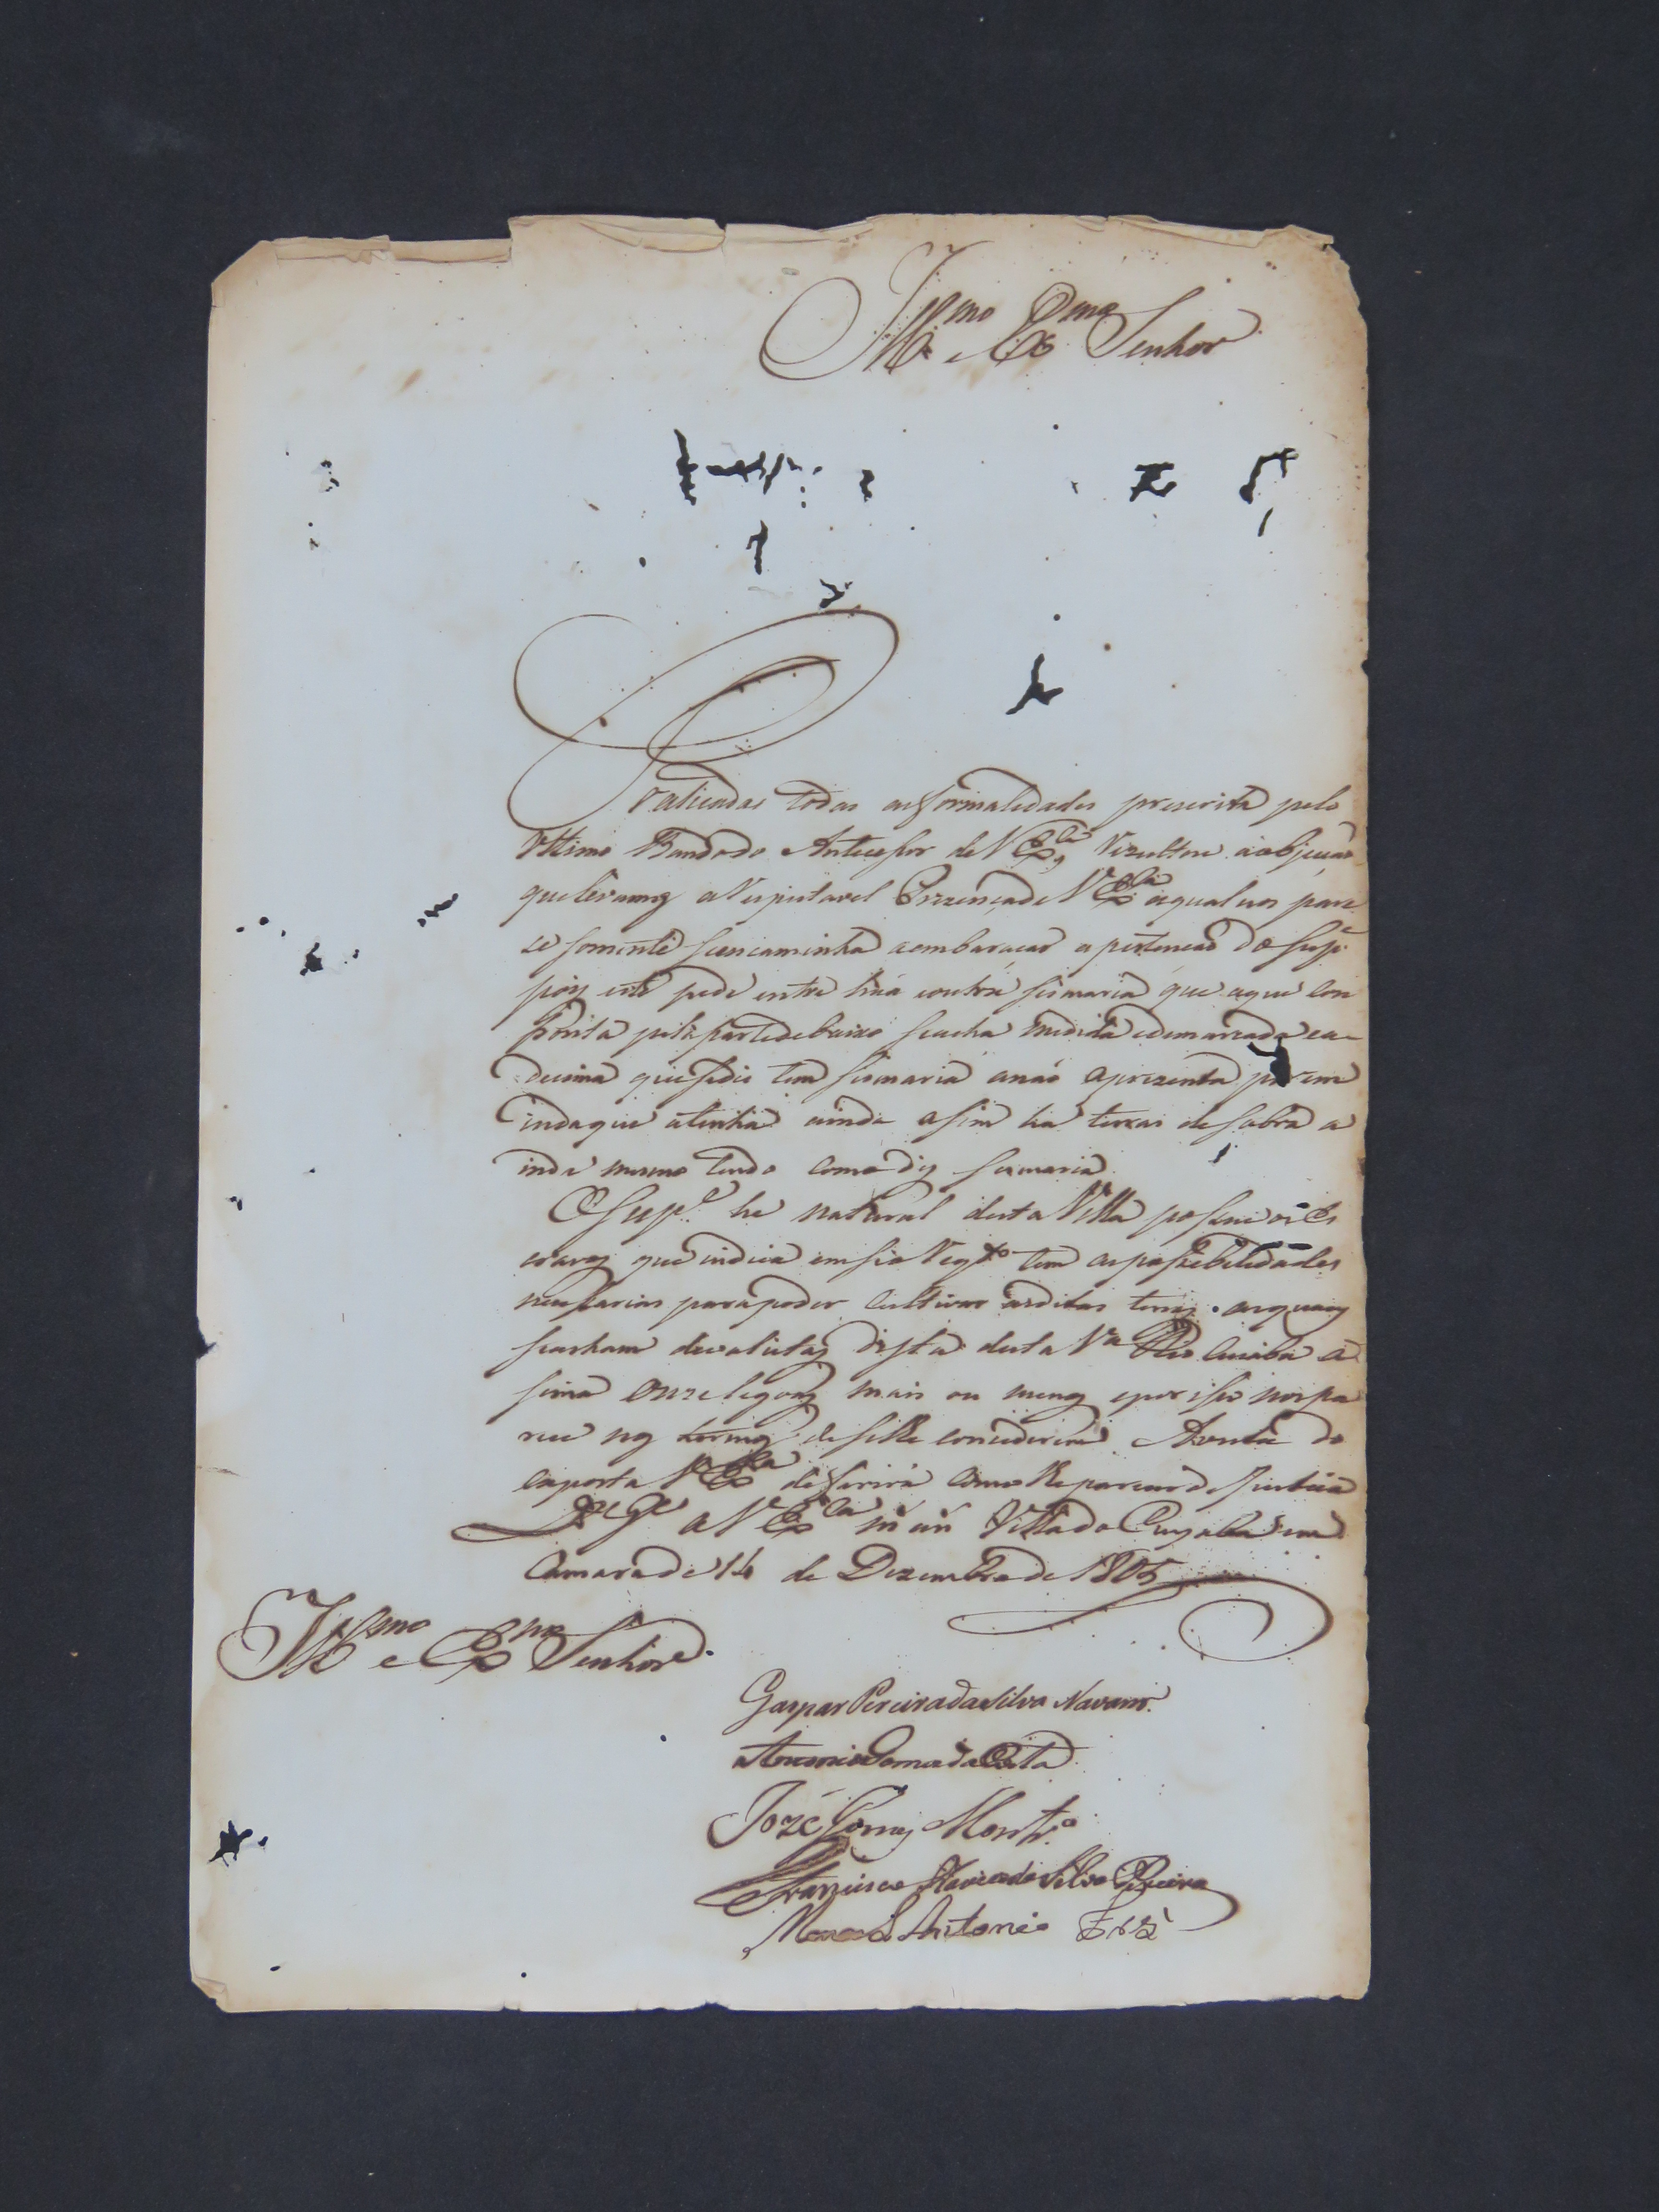 Ill.mo e Ex.mo Senhor
Praticadas todas as formalidades prescrita pelo
Ultimo Bando do Antecesor de V Ex.cia, Rezultou a objeção
que levamos a Respeitavel Prezença de V Ex.cia a qual nos pare
ce somente se encaminha a embaraçar a pertenção do Sup.e
pois este pede entre húa e outra sismaria que a que con
fronta pela parte de baixo se acha medida e demarcada e a
decima que se dis tem sismaria a não aprezenta porem
inda que a tenha ainda asim ha terras de sobra a
inda mesmo tendo como diz sismaria
O Sup.e he natural desta Villa posue os Es
cravos que indica em seu Reqr.to tem as possebelidades
necesarias para poder cultivar as ditas terras as quaes
se acham devalutas dista desta V.a Rio Cuiabá a
sima onze legoas mais ou menos e por iso nos pa
rece nos termos de se lhe concederem. A vista do
exposto V Ex.cia deferirá como lhe parecer de Justiça
D.s G.e a V Ex.cia m. an. Villa do Cuyabá em
Camara de 14 de Dezembro de 1805
Ill.mo e Ex.mo Senhor.
Gaspar Pereira da Silva Navarro.
Antonio Gomes da Costa
Jozé Gomes Montr.o
Francisco Xavier da Silva Pereira
Manoel Antonio